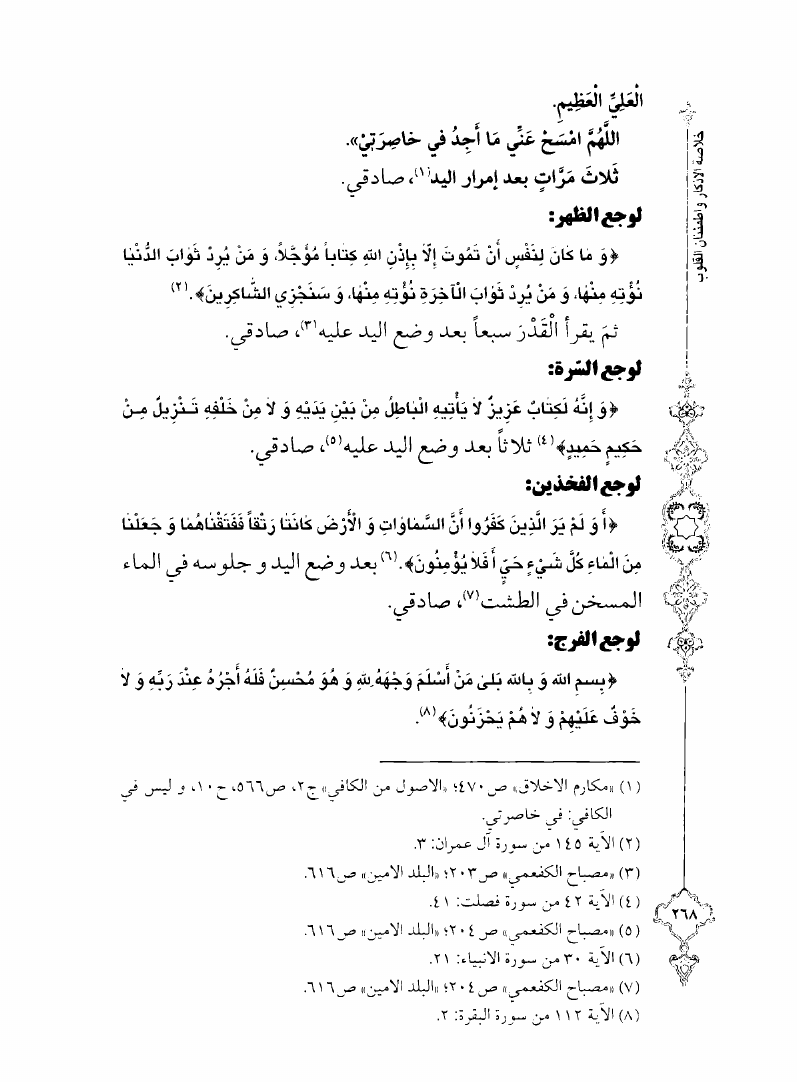 الْعَلِيِّ الْعَظِيمِ.
اللَّهُمَّ امْسَحْ عَنِّي مَا أَجِدُ في خَاصِرَتِيْ».
ثَلاثَ مَرَّاتٍ بعد إمرار اليد(١)، صادقي.
لوجع الظهر:
﴿وَ مَا كَانَ لِنَفْسٍ أَنْ تَمُوتَ إِلَّا بِإِذْنِ اللهِ كِتَاباً مُؤَجَّلاً، وَ مَنْ يُرِدْ ثَوَابَ الدُّنْيَا
نُؤْتِهِ مِنْهَا، وَ مَنْ يُرِدْ ثَوَابَ الْآخِرَةِ نُؤْتِهِ مِنْهَا، وَ سَنَجْزِي الشَّاكِرِينَ﴾.(٢)
ثمّ يقرأ الْقَدْرَ سبعاً بعد وضع اليد عليه(٣)، صادقي.
لوجع السّرة:
﴿وَ إِنَّهُ لَكِتَابٌ عَزِيزٌ لَا يَأْتِيهِ الْبَاطِلُ مِنْ بَيْنِ يَدَيْهِ وَ لَا مِنْ خَلْفِهِ تَنْزِيلٌ مِنْ
حَكِيمٍ حَمِيدٍ﴾(٤) ثلاثاً بعد وضع اليد عليه(٥)، صادقي.
لوجع الفخذين:
﴿أَ وَ لَمْ يَرَ الَّذِينَ كَفَرُوا أَنَّ السَّمَاوَاتِ وَ الْأَرْضَ كَانَتَا رَتْقاً فَفَتَقْنَاهُمَا وَ جَعَلْنَا
مِنَ الْمَاءِ كُلَّ شَيْءٍ حَيٍّ أَ فَلَا يُؤْمِنُونَ﴾.(٦) بعد وضع اليد و جلوسه في الماء
المسخن في الطشت(٧)، صادقي.
لوجع الفرج:
﴿بِسمِ اللهِ وَ بِاللهِ بَلىٰ مَنْ أَسْلَمَ وَجْهَهُ لِلهِ وَ هُوَ مُحْسِنٌ فَلَهُ أَجْرُهُ عِنْدَ رَبِّهِ وَ لَا
خَوْفٌ عَلَيْهِمْ وَ لَا هُمْ يَحْزَنُونَ﴾(٨).
(١) «مكارم الاخلاق» ص٤٧٠؛ «الاصول من الكافي» ج٢، ص٥٦٦، ح١٠، و ليس في
الكافي: في خاصرتي.
(٢) الآية ١٤٥ من سورة آل عمران: ٣.
(٣) «مصباح الكفعمي» ص٢٠٣؛ «البلد الامين» ص٦١٦.
(٤) الآية ٤٢ من سورة فصلت: ٤١.
(٥) «مصباح الكفعمي» ص٢٠٤؛ «البلد الامين» ص٦١٦.
(٦) الآية ٣٠ من سورة الانبياء: ٢١.
(٧) «مصباح الكفعمي» ص٢٠٤؛ «البلد الامين» ص٦١٦.
(٨) الآية ١١٢ من سورة البقرة: ٢.
خلاصة الاذكار واطمئنان القلوب
٢٦٨